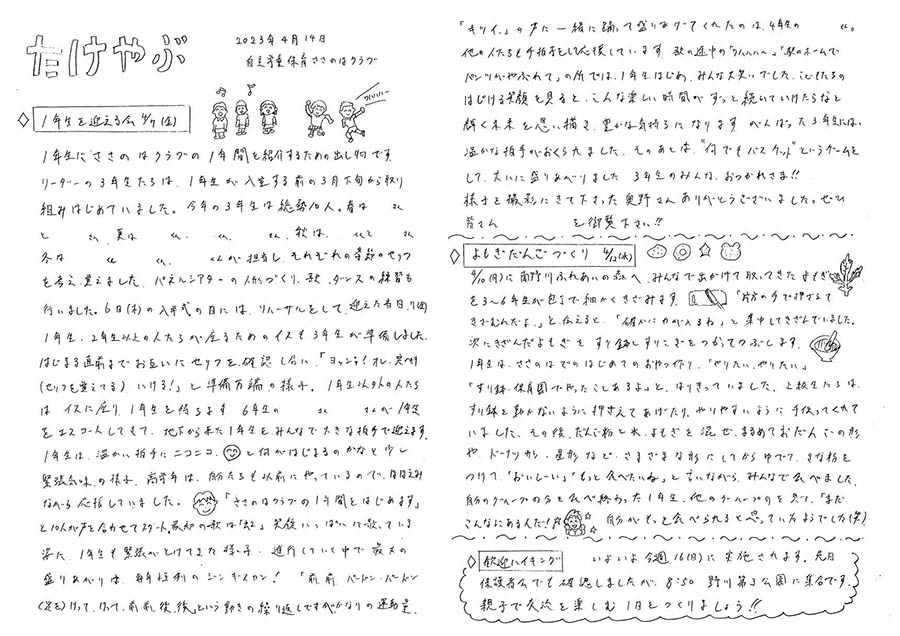 たけやぶ
2023年4月14日
自主学童保育ささのはクラブ
1年生を迎える会 4/7(金)
1年生に"ささのはクラブの1年間を紹介するための出し物です。
リーダーの3年生たちは、1年生が入室する前の3月下旬から取り
組みはじめていました。今年の3年生は総勢10人。春は さん
と さん、夏は さん、 さん、 さん、秋は、 さんと さん
冬は さん、 さん、 さんが担当し、それぞれの季節のセリフ
を考え、覚えました。パネルシアターの人形づくり、歌、ダンスの練習も
行いました。6日(木)の入学式の日には、リハーサルをして、迎えた当日、7(金)
1年生、2年生以上の人たちが座るためのイスも3年生が準備しました。
はじまる直前までお互いにセリフを確認し合い「ヨッシャ!オレ、完ペキ
(セリフを覚えてる) いける!」と準備万端の様子。1年生以外の人たち
は イスに座り、1年生を待ちます 6年生の さん さんが1年生
をエスコートしてきて、地下から来た1年生をみんなで大きな拍手で迎えます。
1年生は、温かい拍手にニコニコ と何がはじまるのかなと少し
緊張気味の様子。高学年は、自分たちも以前にやっているので、目を細め
ながら応援していました。 「ささのはクラブの1年間をはじめます」
と10人が声を合わせてスタート。最初の歌は「虹」笑顔いっぱいに歌っている
姿に、1年生も緊張がとけてきた様子。進行していく中で最大の
盛りあがりは、毎年恒例のジンギスカン! 「前、前、パートン・パートン
(足を)けって、けって、前、前、後、後」という動きの繰り返しですがかなりの運動量。
「キツイ。」の声に一緒に踊って盛りあげてくれたのは、4年生の さん。
他の人たちも手拍子をして応援しています。歌の途中の「ウハハハ〜」「駅のホームで
パンツがやぶれて」の所では、1年生はじめ、みんな大笑いでした。こどもたちの
はじける笑顔を見ると、こんな楽しい時間がずっと続いていけたらなと
輝く未来を思い描き、豊かな気持ちになります がんばった3年生には、
温かな拍手がおくられました。そのあとは、"何でもバスケット"というゲームを
して、大いに盛りあがりました 3年生のみんな、おつかれさま!!
様子を撮影にきて下さった奥野さんありがとうございました。ぜひ
皆さん を御覧下さい!!
よもぎだんごづくり 4/12(水)
4/10(月)に南野川ふれあいの森へ、みんなで出かけて取ってきたよもぎ
を3〜6年生が包丁で細かくきざみます。 「片方の手で押さえて
きざむんだよ。」と伝えると、「確かに力が入るね」と集中してきざんでいました。
次にきざんだよもぎを すり鉢とすりこぎをつかってつぶします。
1年生は、ささのはでのはじめてのおやつ作り。「やりたい、やりたい」
「すり鉢、保育園でやったことあるよ」と、はりきっていました。上級生たちは、
すり鉢を動かないように押さえてあげたり、やりやすいように手伝ってくれて
いました。その後、だんご粉と水、よもぎを混ぜ、まるめておだんごの形
や、ドーナツ形、星形など、さまざまな形にしてからゆでて、きな粉を
つけて、「おいしーい」「もっと食べたいね」と言いながら、みんなで食べました。
自分のグループの分を食べ終わった1年生、他のグループのを見て、「まだ
こんなにあるんだ!」 自分がもっと食べられると思っていたようでした(笑)
歓迎ハイキング いよいよ今週16(日)に実施されます。先日
保護者会でも確認しましたが、8:50 野川第3公園に集合です。
親子で交流を楽しむ1日をつくりましょう!!